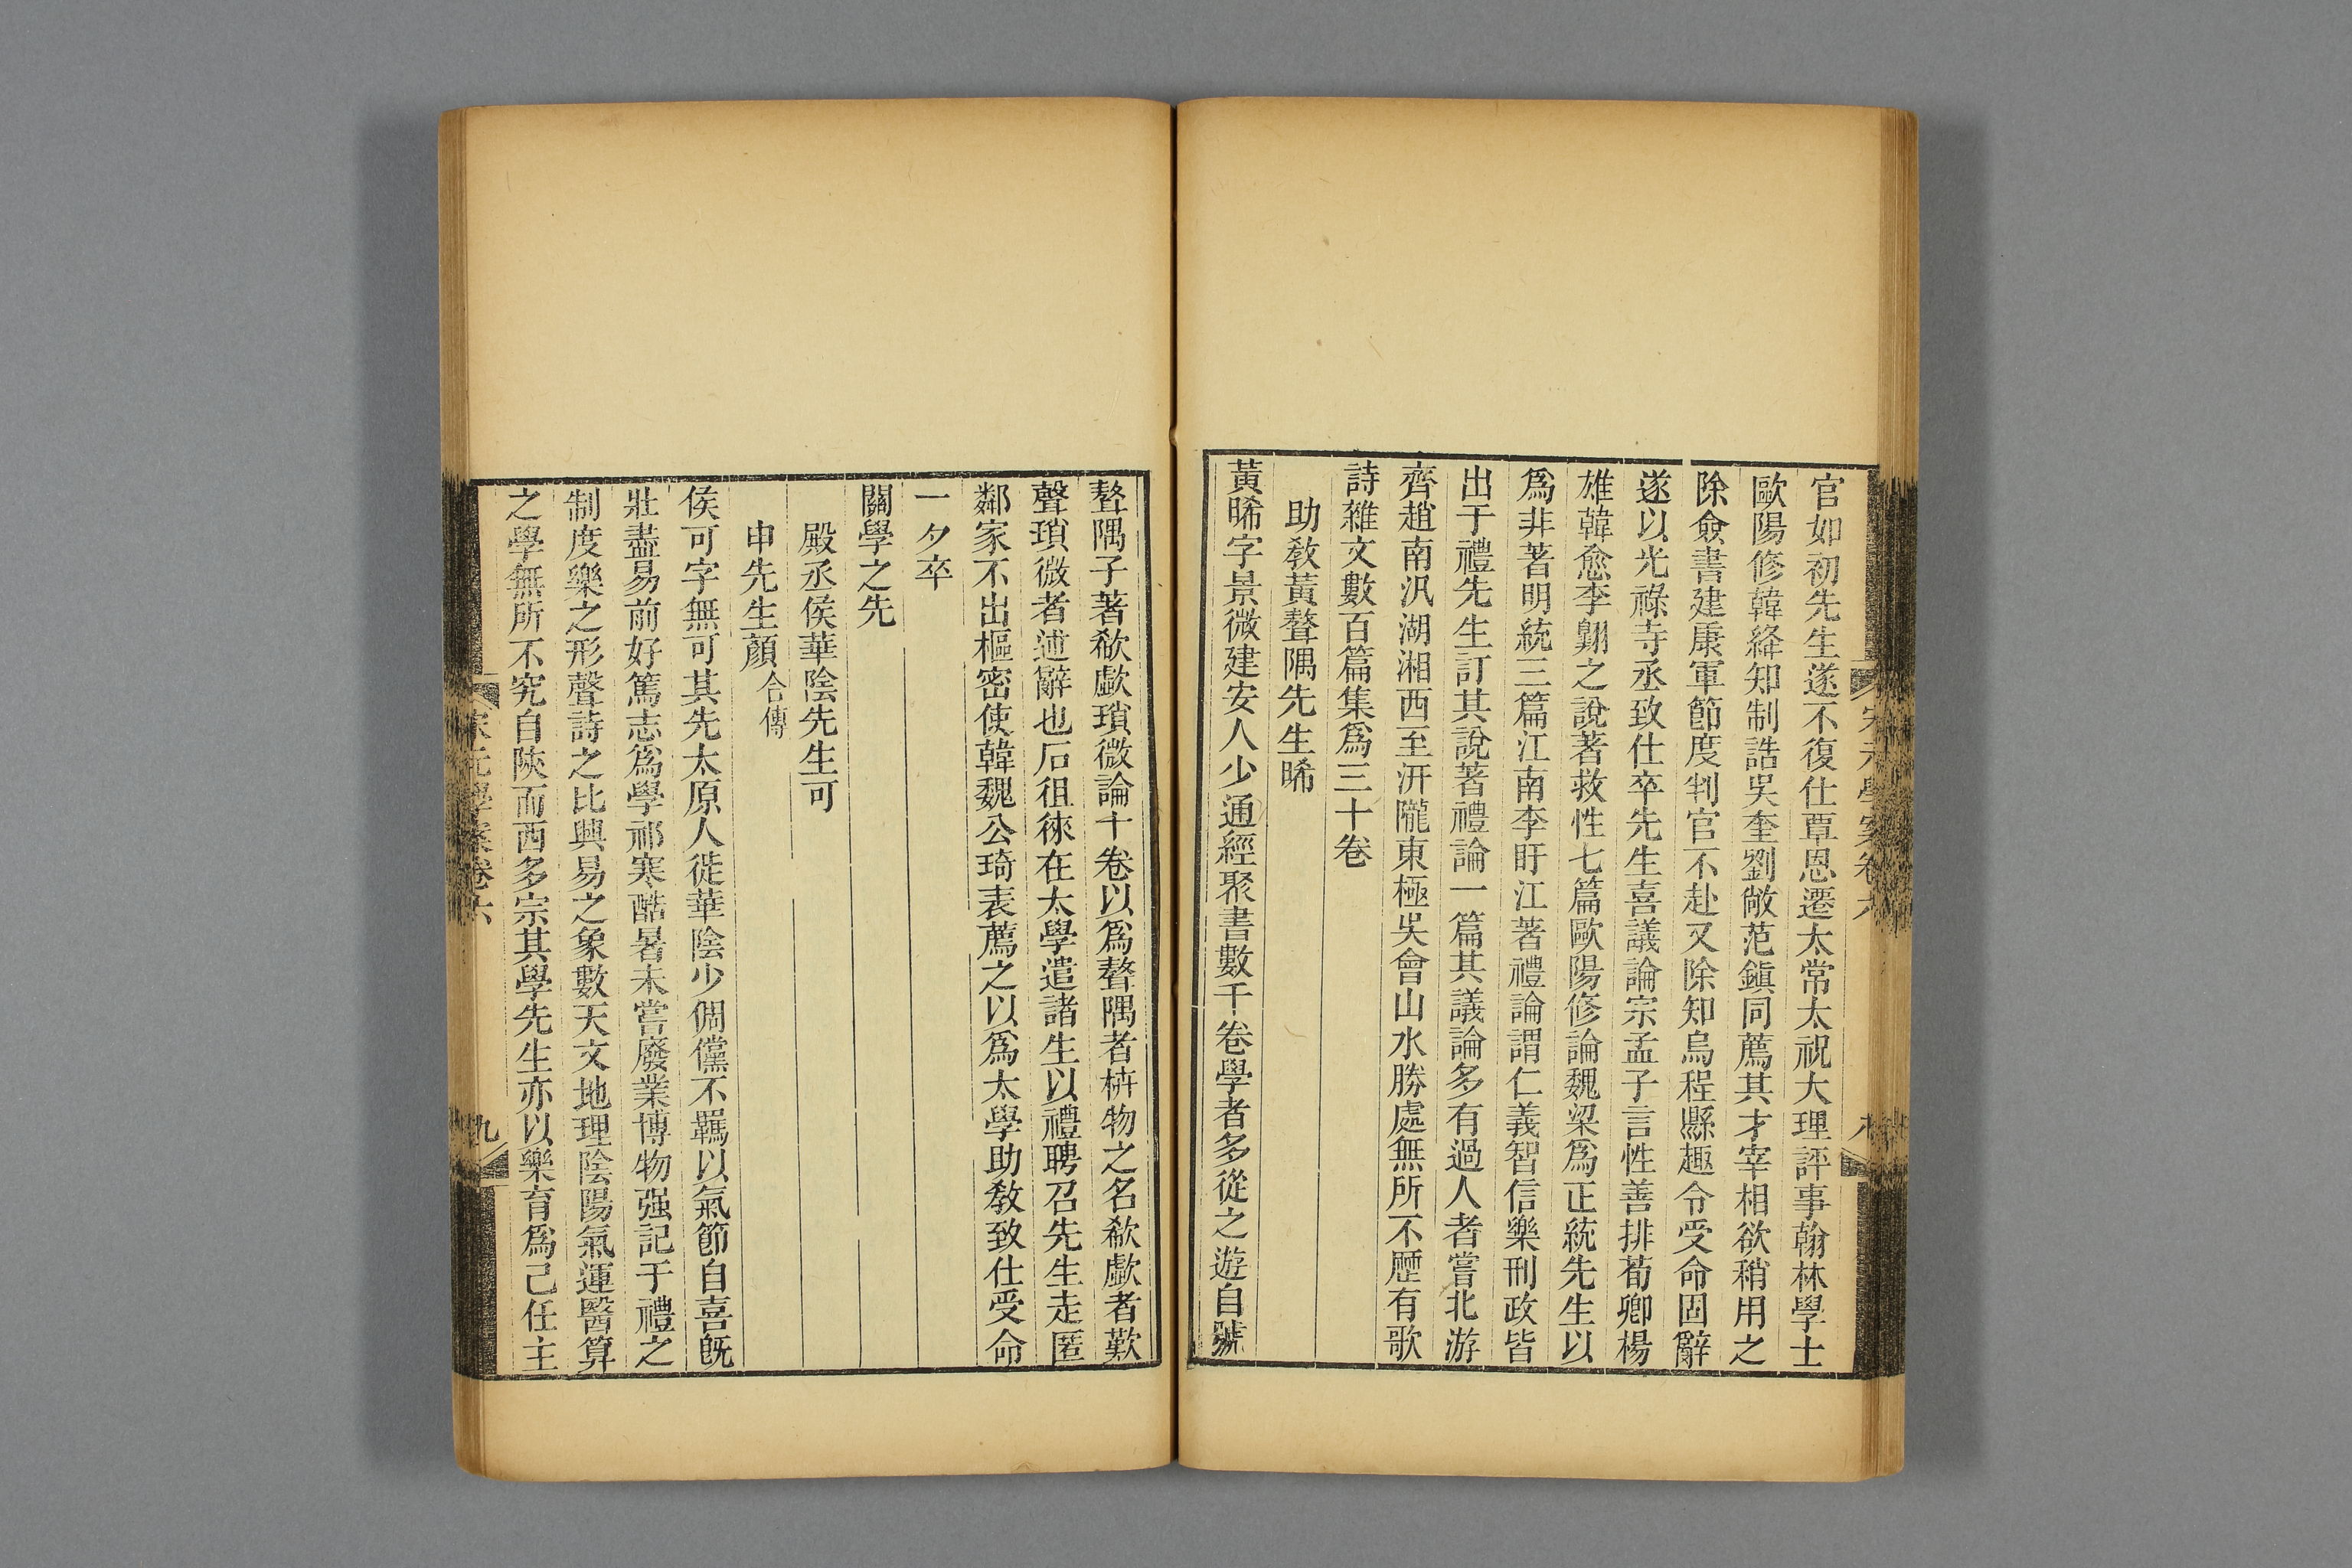 官如初先生遂不復仕覃恩遷太常太祝大理評事翰林學士
歐陽修韓絳知制誥吳奎劉敞范鎭同薦其才宰相欲稍用之
除僉書建康軍節度判官不赴又除知烏程縣趣令受命固辭
遂以光祿寺丞致仕卒先生喜議論宗孟子言性善排荀卿楊
雄韓愈李翺之說著救性七篇歐陽修論魏梁爲正統先生以
爲非著明統三篇江南李盱江著禮論謂仁義智信樂刑政皆
出于禮先生訂其說著禮論一篇其議論多有過人者嘗北游
齊趙南汎湖湘西至汧隴東極吳會山水勝處無所不歷有歌
詩雜文數百篇集爲三十卷
助敎黃聱隅先生晞
黃晞字景微建安人少通經聚書數千卷學者多從之遊自號
聱隅子著欷歔瑣微論十卷以爲聱隅者枿物之名欷歔者歎
聲瑣微者述辭也石徂徠在太學遣諸生以禮聘召先生走匿
鄰家不出樞密使韓魏公琦表薦之以爲太學助敎致仕受命
一夕卒
關學之先
殿丞侯華陰先生可
申先生顏合傳
侯可字無可其先太原人徙華陰少倜儻不羈以氣節自喜旣
壯盡易前好篤志爲學祁寒酷暑未嘗廢業博物强記于禮之
制度樂之形聲詩之比興易之象數天文地理陰陽氣運醫算
之學無所不究自陝而西多宗其學先生亦以樂育爲己任主
宋元學案卷六
九